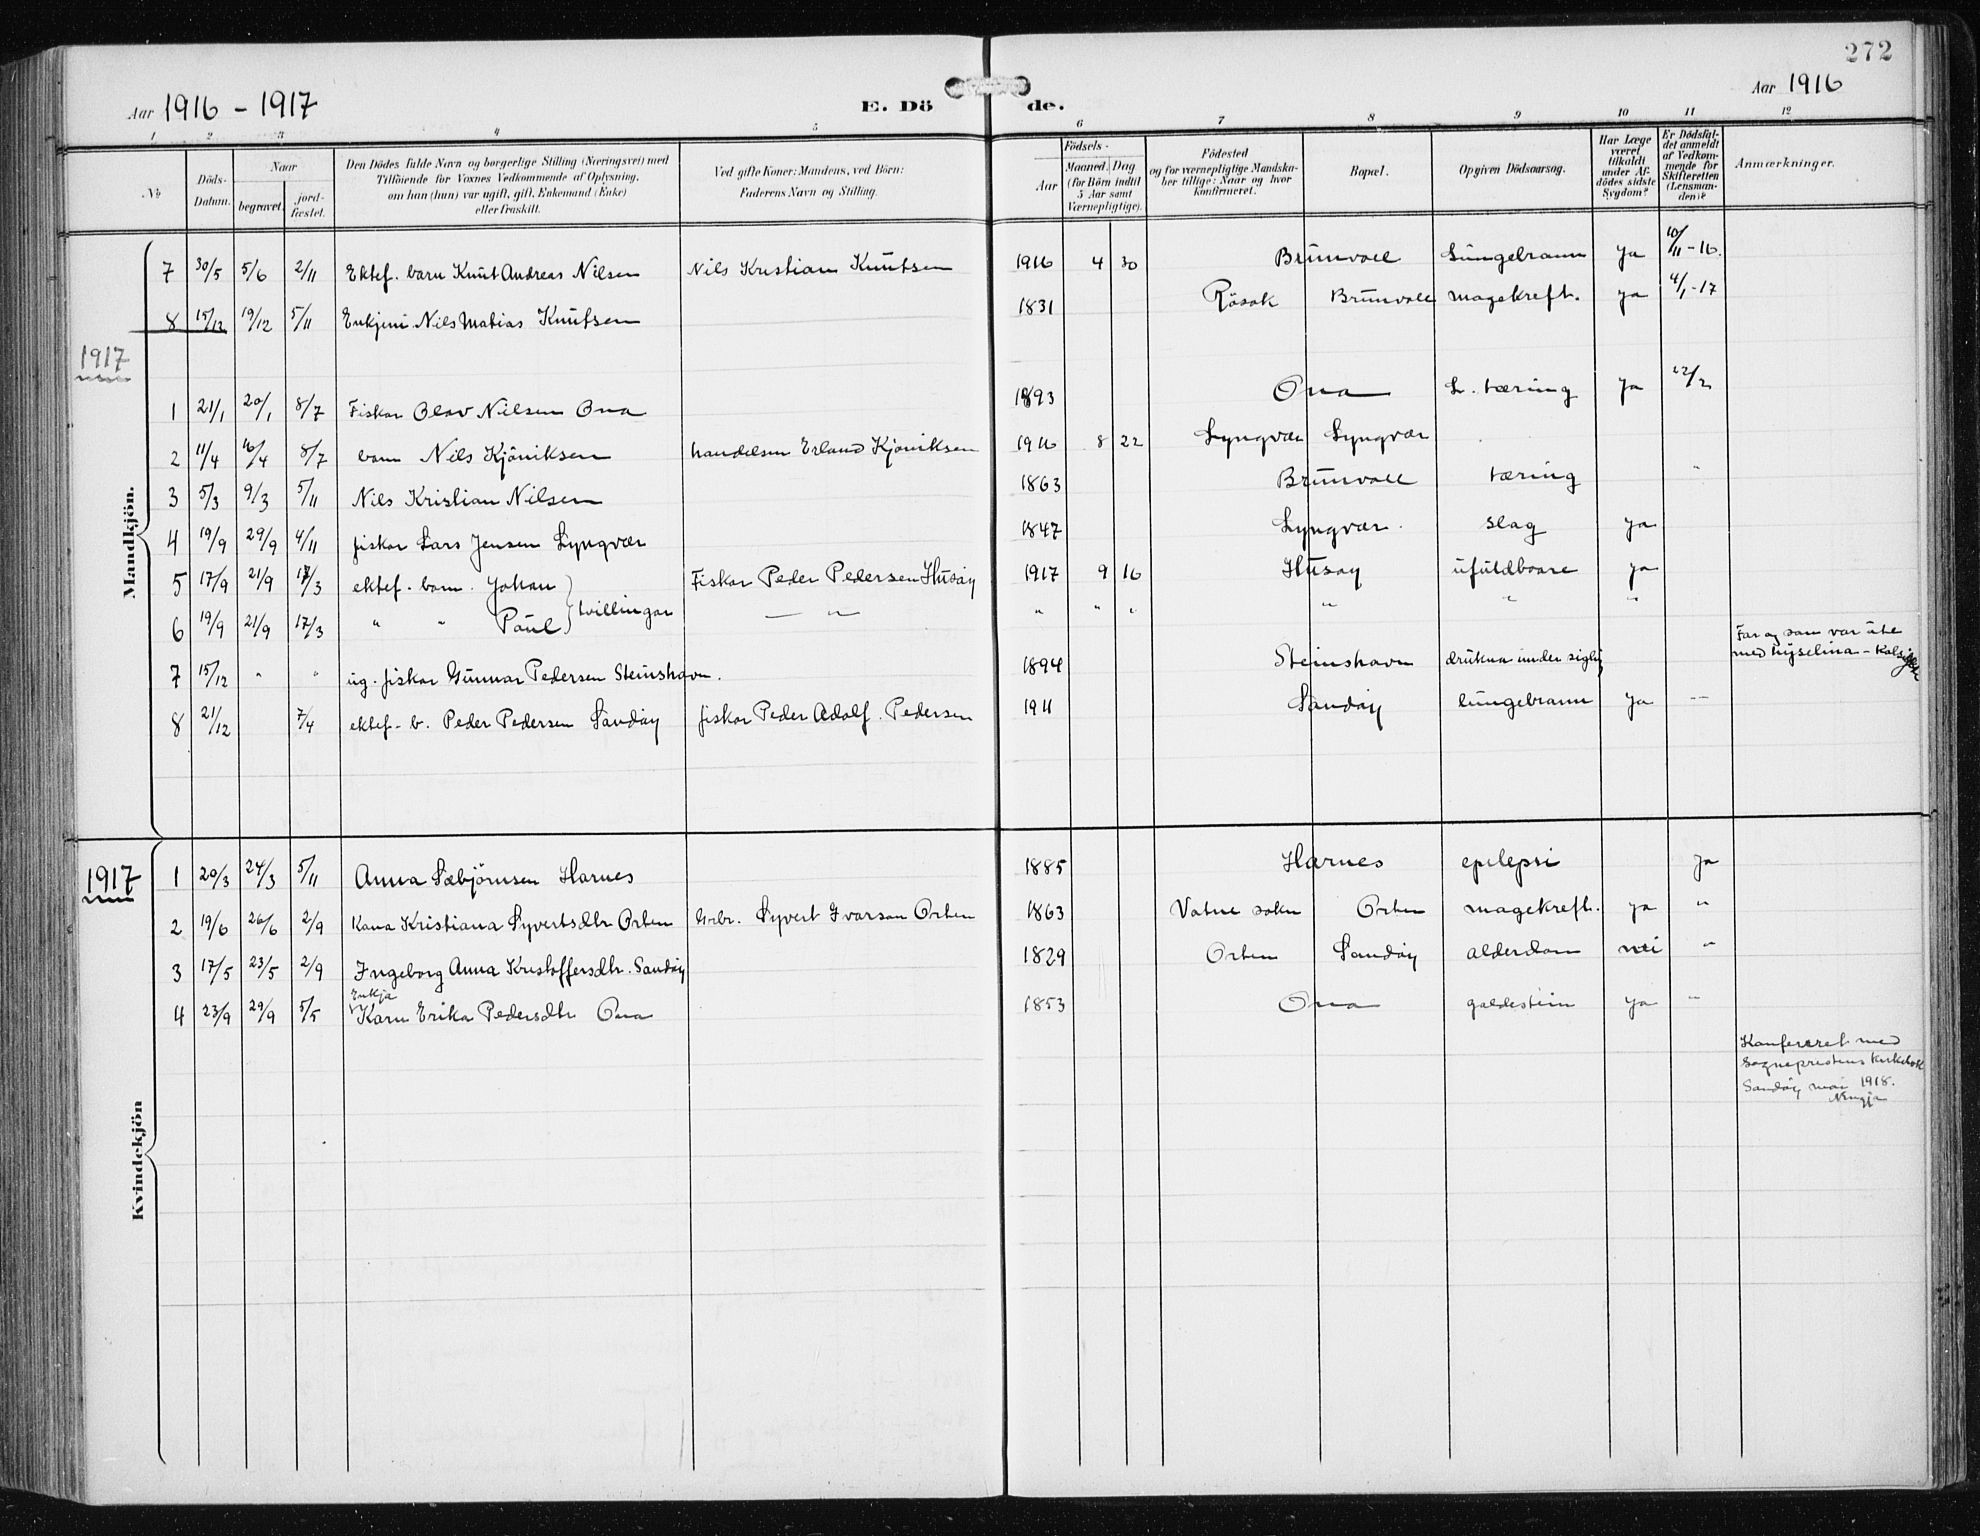 272
Aar 1916 - 1917
E. Dö
de.
Aar 1916
1 2 3 4 5 6 7 8 9 10 11 12
No
Döds-Datum.
Naar
begravet.
jord-fæstet.
Den Dödes fulde Navn og borgerlige Stilling (Næringsvei) med
Tilföiende for Voxnes Vedkommende af Oplysning,
om han (hun) var ugift, gift, Enkemand (Enke)
eller fraskilt.
Ved gifte Koner: Mandens, ved Börn:
Faderens Navn og Stilling.
Födsels-
Aar
Maaned. Dag
(for Börn indtil
5 Aar samt
Værnepligtige).
Födested
og for værnepligtige Mandska-
ber tillige: Naar og hvor
konfirmeret.
Bopæl.
Opgiven Dödsaarsag.
Har Læge
været
tilkaldt
under Af-
dödes sidste
Sygdom?
Er Dödsfal-
det anmeldt
af Vedkom-
mende for
Skifteretten
(Lensman-
den)?
Anmærkninger.
Mandkjön.
7 30/5 5/6 2/11 Ektef. barn Knut Andreas Nilsen Nils Kristian Knutsen 1916 4 30 Brunvoll Lungebrann ja 10/11-16.
8 15/12 19/12 5/11 Enkjem. Nils Matias Knutsen 1831 Rösok Brunvoll magekreft. ja 4/1-17
1917
1 21/1 20/1 8/7 Fiskar Olav Nilsen Ona 1893 Ona L. tæring ja 12/2
2 11/4 16/4 8/7 barn Nils Kjöniksen handelsm Erland Kjöniksen 1916 8 22 Lyngvær Lyngvær
3 5/3 9/3 5/11 Nils Kristian Nilsen 1863 Brunvoll tæring "
4 19/9 29/9 4/11 fiskar Lars Jensen Lyngvær 1847 Lyngvær. slag ja
5 17/9 21/9 17/3 ektef. barn. Johan Fiskar Peder Pedersen Husöy 1917 9 16 Husøy ufuldbaare ja
tvillingar
6 19/9 21/9 17/3 " " Paul — " — " " " " " "
7 15/12 " " ug. fiskar Gunnar Pedersen Steinshavn. 1894 Steinshavn drukna under sigling Far og son var ute
med
8 21/12 7/4 ektef. b. Peder Pedersen Sandöy fiskar Peder Adolf Pedersen 1911 Sandöy lungebrann ja —
Kvindekjön
1917
1 20/3 24/3 5/11 Anna Sæbjörnsen Harnes 1885 Harnes epilepsi ja
2 19/6 26/6 2/9 Kona Kristiana Syvertsdtr Orten Grbr. Syvert Ivarson Orten 1863 Vatne sokn Orten magekreft. ja "
3 17/5 23/5 2/9 Ingeborg Anna Kristoffersdtr. Sandöy 1829 Orten Sandöy alderdom nei "
Enkja
4 23/9 29/9 5/5 Karn Erika Pedersdtr Ona 1853 Ona galdestein ja "
Konfereret med
Sogneprestens kirkebok
Sandöy mai 1918.